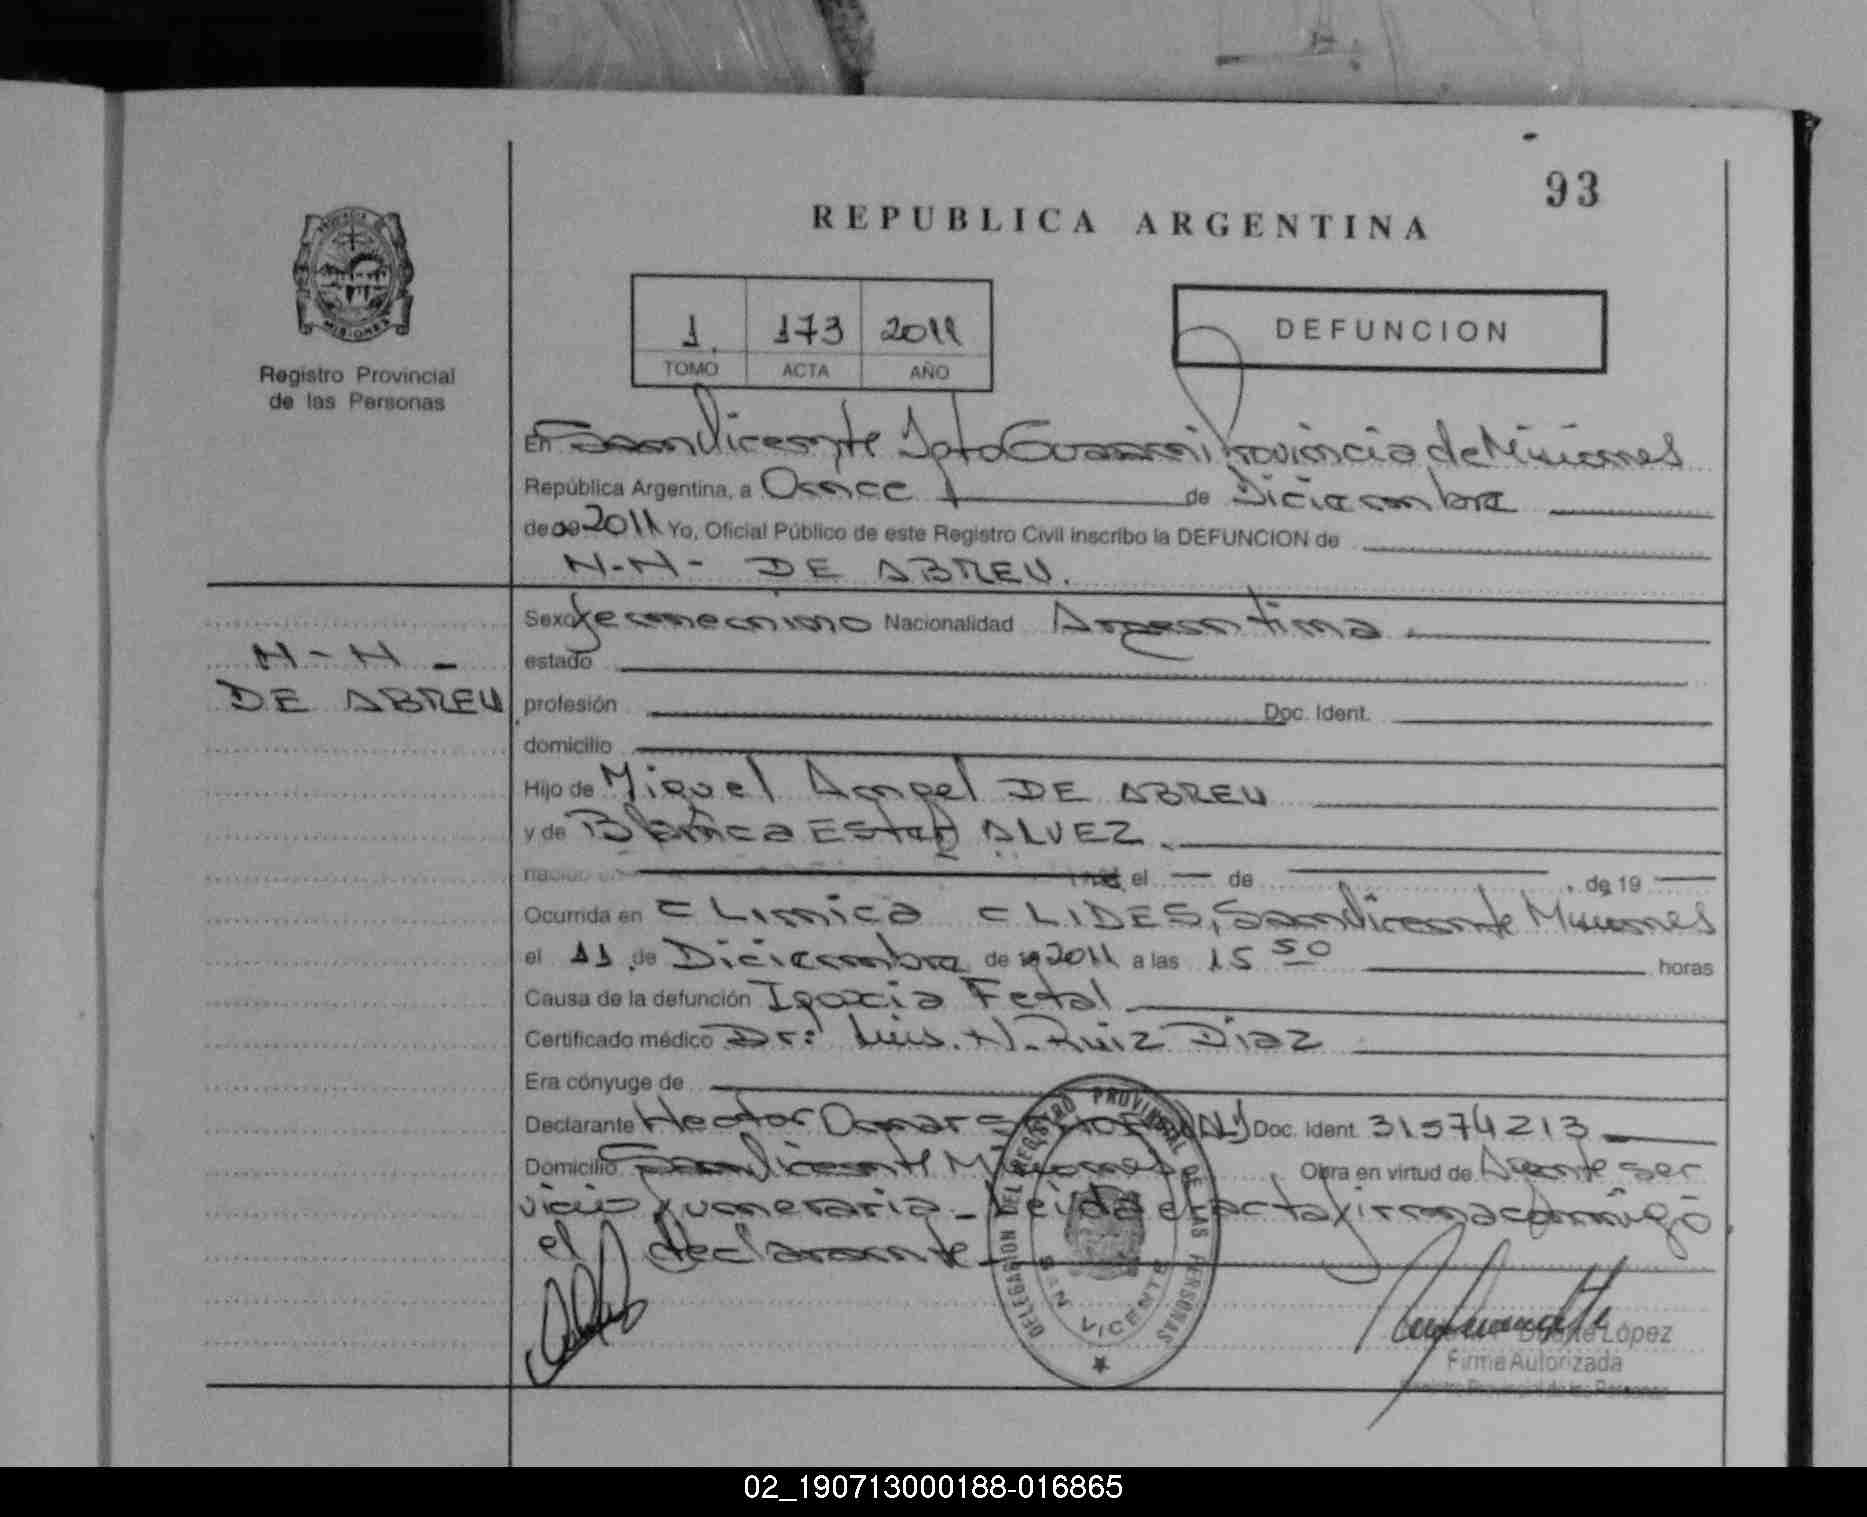 93
REPUBLICA ARGENTINA
PROVINCIA
MISIONES
Registro Provincial
de las Personas
1 173 2011
TOMO ACTA AÑO
DEFUNCION
En San Vicente Dpto Guarani Provincia de Misiones
República Argentina, a Once de Diciembre
de 2011 Yo, Oficial Público de este Registro Civil inscribo la DEFUNCION de
N-N- DE ABREU.
N-N-
DE ABREU
Sexo femenino Nacionalidad Argentina
estado
profesión Doc. Ident.
domicilio
Hijo de Miguel Angel DE ABREU
y de Blanca Ester ALVEZ
nacido en el de de 19
Ocurrida en CLinica CLIDES, San Vicente Misiones
el 11 de Diciembre de 2011 a las 15 50 horas
Causa de la defunción Ipoxia Fetal
Certificado médico Dr: Luis. N. Ruiz Diaz
Era cónyuge de
Declarante Hector Omar Doc. Ident. 31574213
Domicilio San Vicente Misiones Obra en virtud de Agente ser
vicio funeraria - Leida el acta firma conmigo
el declarante
DELEGACION DEL REGISTRO PROVINCIAL DE LAS PERSONAS
SAN VICENTE
Duarte López
Firma Autorizada
Registro Provincial de las Personas
02_190713000188-016865